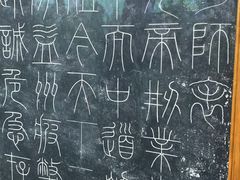 師表
帝刱業
而中道
今天下
益州疲敝
誠危急存